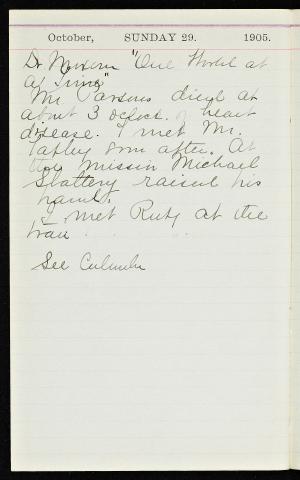 October, SUNDAY 29. 1905.
Dr "One World at
a Time"
Mr. Parsons died at
about 3 o'clock of heart
disease. I met Mr.
Tapley soon after. At
the mission Michael
Slattery raised his
hand.
I met Ruty at the
train
See Calendar